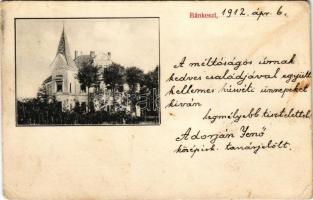 Bánkeszi, 1912. ápr. 6.
A méltóságos úrnak
kedves családjával együtt
kellemes húsvéti ünnepeket
kíván
legmélyebb tisztelettel
Adorján Jenő
középisk. tanárjelölt.